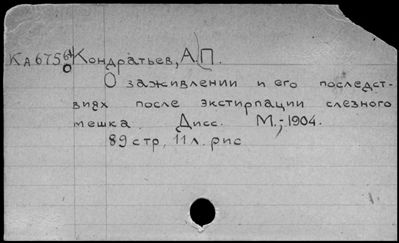 Ка675 Кондратьев, А.П.
О заживлении и его последст-
виях после экстирпации слезного
мешка. Дисс. М., 1904.
89 стр, 11 л. рис